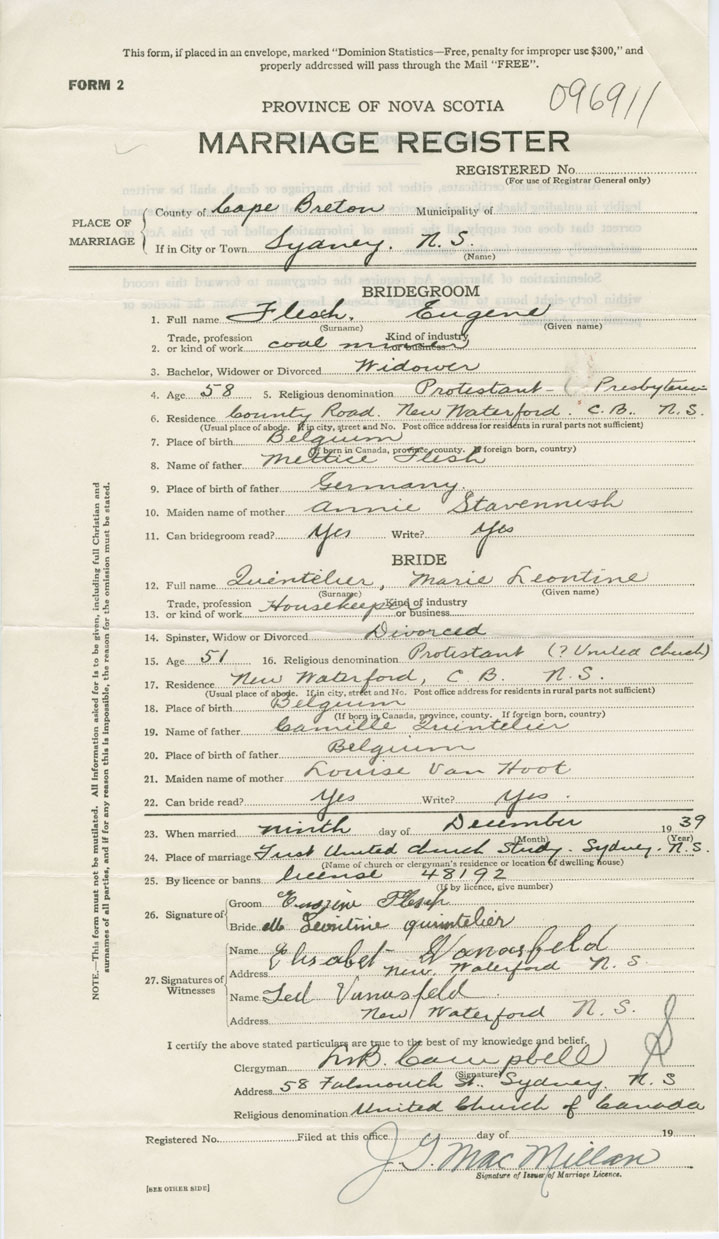 This form, if placed in an envelope, marked "Dominion Statistics—Free, penalty for improper use $300," and
properly addressed will pass through the Mail "FREE".
FORM 2
096911
PROVINCE OF NOVA SCOTIA
MARRIAGE REGISTER
REGISTERED No.
(For use of Registrar General only)
PLACE OF MARRIAGE
County of Cape Breton Municipality of
If in City or Town Sydney. N.S.
(Name)
BRIDEGROOM
1. Full name Flesh, Eugene
(Surname) (Given name)
2. Trade, profession or kind of work coal miner Kind of industry or business
3. Bachelor, Widower or Divorced Widower
4. Age 58 5. Religious denomination Protestant - Presbyterian
6. Residence County Road. New Waterford. C.B. N.S.
(Usual place of abode. If in city, street and No. Post office address for residents in rural parts not sufficient)
7. Place of birth Belgium
(If born in Canada, province, county. If foreign born, country)
8. Name of father Flesh
9. Place of birth of father Germany.
10. Maiden name of mother Annie Stavennish
11. Can bridegroom read? Yes Write? Yes
BRIDE
12. Full name Quintelier, Marie Leontine
(Surname) (Given name)
13. Trade, profession or kind of work Housekeeper Kind of industry or business
14. Spinster, Widow or Divorced Divorced
15. Age 51 16. Religious denomination Protestant (? United Church)
17. Residence New Waterford, C.B. N.S.
(Usual place of abode. If in city, street and No. Post office address for residents in rural parts not sufficient)
18. Place of birth Belgium
(If born in Canada, province, county. If foreign born, country)
19. Name of father Camille Quintelier
20. Place of birth of father Belgium
21. Maiden name of mother Louise Van Hoot
22. Can bride read? Yes Write? Yes.
23. When married ninth day of December 1939
(Month) (Year)
24. Place of marriage First United Church Study. Sydney. N.S.
(Name of church or clergyman's residence or location of dwelling house)
25. By licence or banns license 48192
(If by licence, give number)
26. Signature of
Groom Eugene Flesh
Bride Leontine quintelier
27. Signatures of Witnesses
Name Elisabet Vanasfeld
Address New Waterford N.S.
Name Ted Vanasfeld
Address New Waterford N.S.
I certify the above stated particulars are true to the best of my knowledge and belief.
Clergyman Campbell
(Signature)
Address 58 Falmouth St., Sydney, N.S
Religious denomination United Church of Canada
Registered No. Filed at this office day of 19
J. G. MacMillan
Signature of Issuer of Marriage Licence.
[SEE OTHER SIDE]
NOTE.—This form must not be mutilated. All information asked for is to be given, including full Christian and
surnames of all parties, and if for any reason this is impossible, the reason for the omission must be stated.